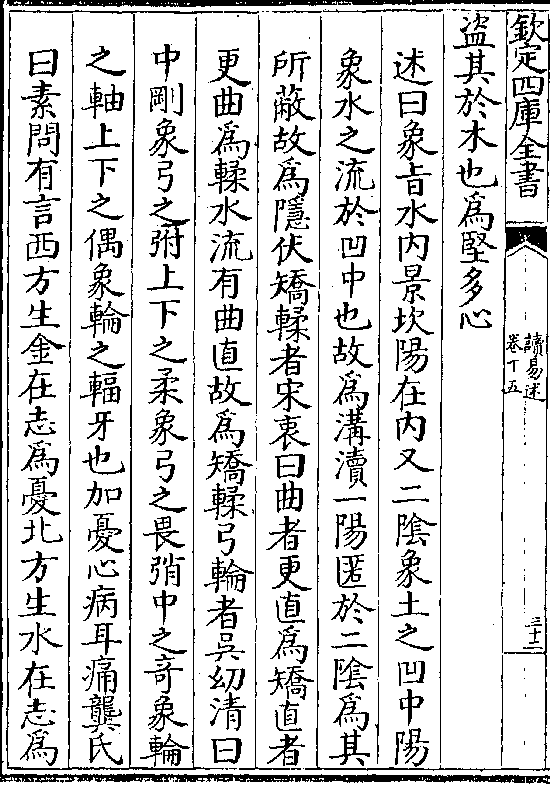 欽定四庫全書
讀易述
卷十五
三十二
盜其於木也為堅多心
述曰象旨水内景坎陽在内又二陰象土之凹中陽
象水之流於凹中也故為溝瀆一陽匿於二陰為其
所蔽故為隱伏矯輮者宋衷曰曲者更直為矯直者
更曲為輮水流有曲直故為矯輮弓輪者吳幼清曰
中剛象弓之弣上下之柔象弓之畏弰中之竒象輪
之軸上下之偶象輪之輻牙也加憂心病耳痛龔氏
曰素問有言西方生金在志為憂北方生水在志為